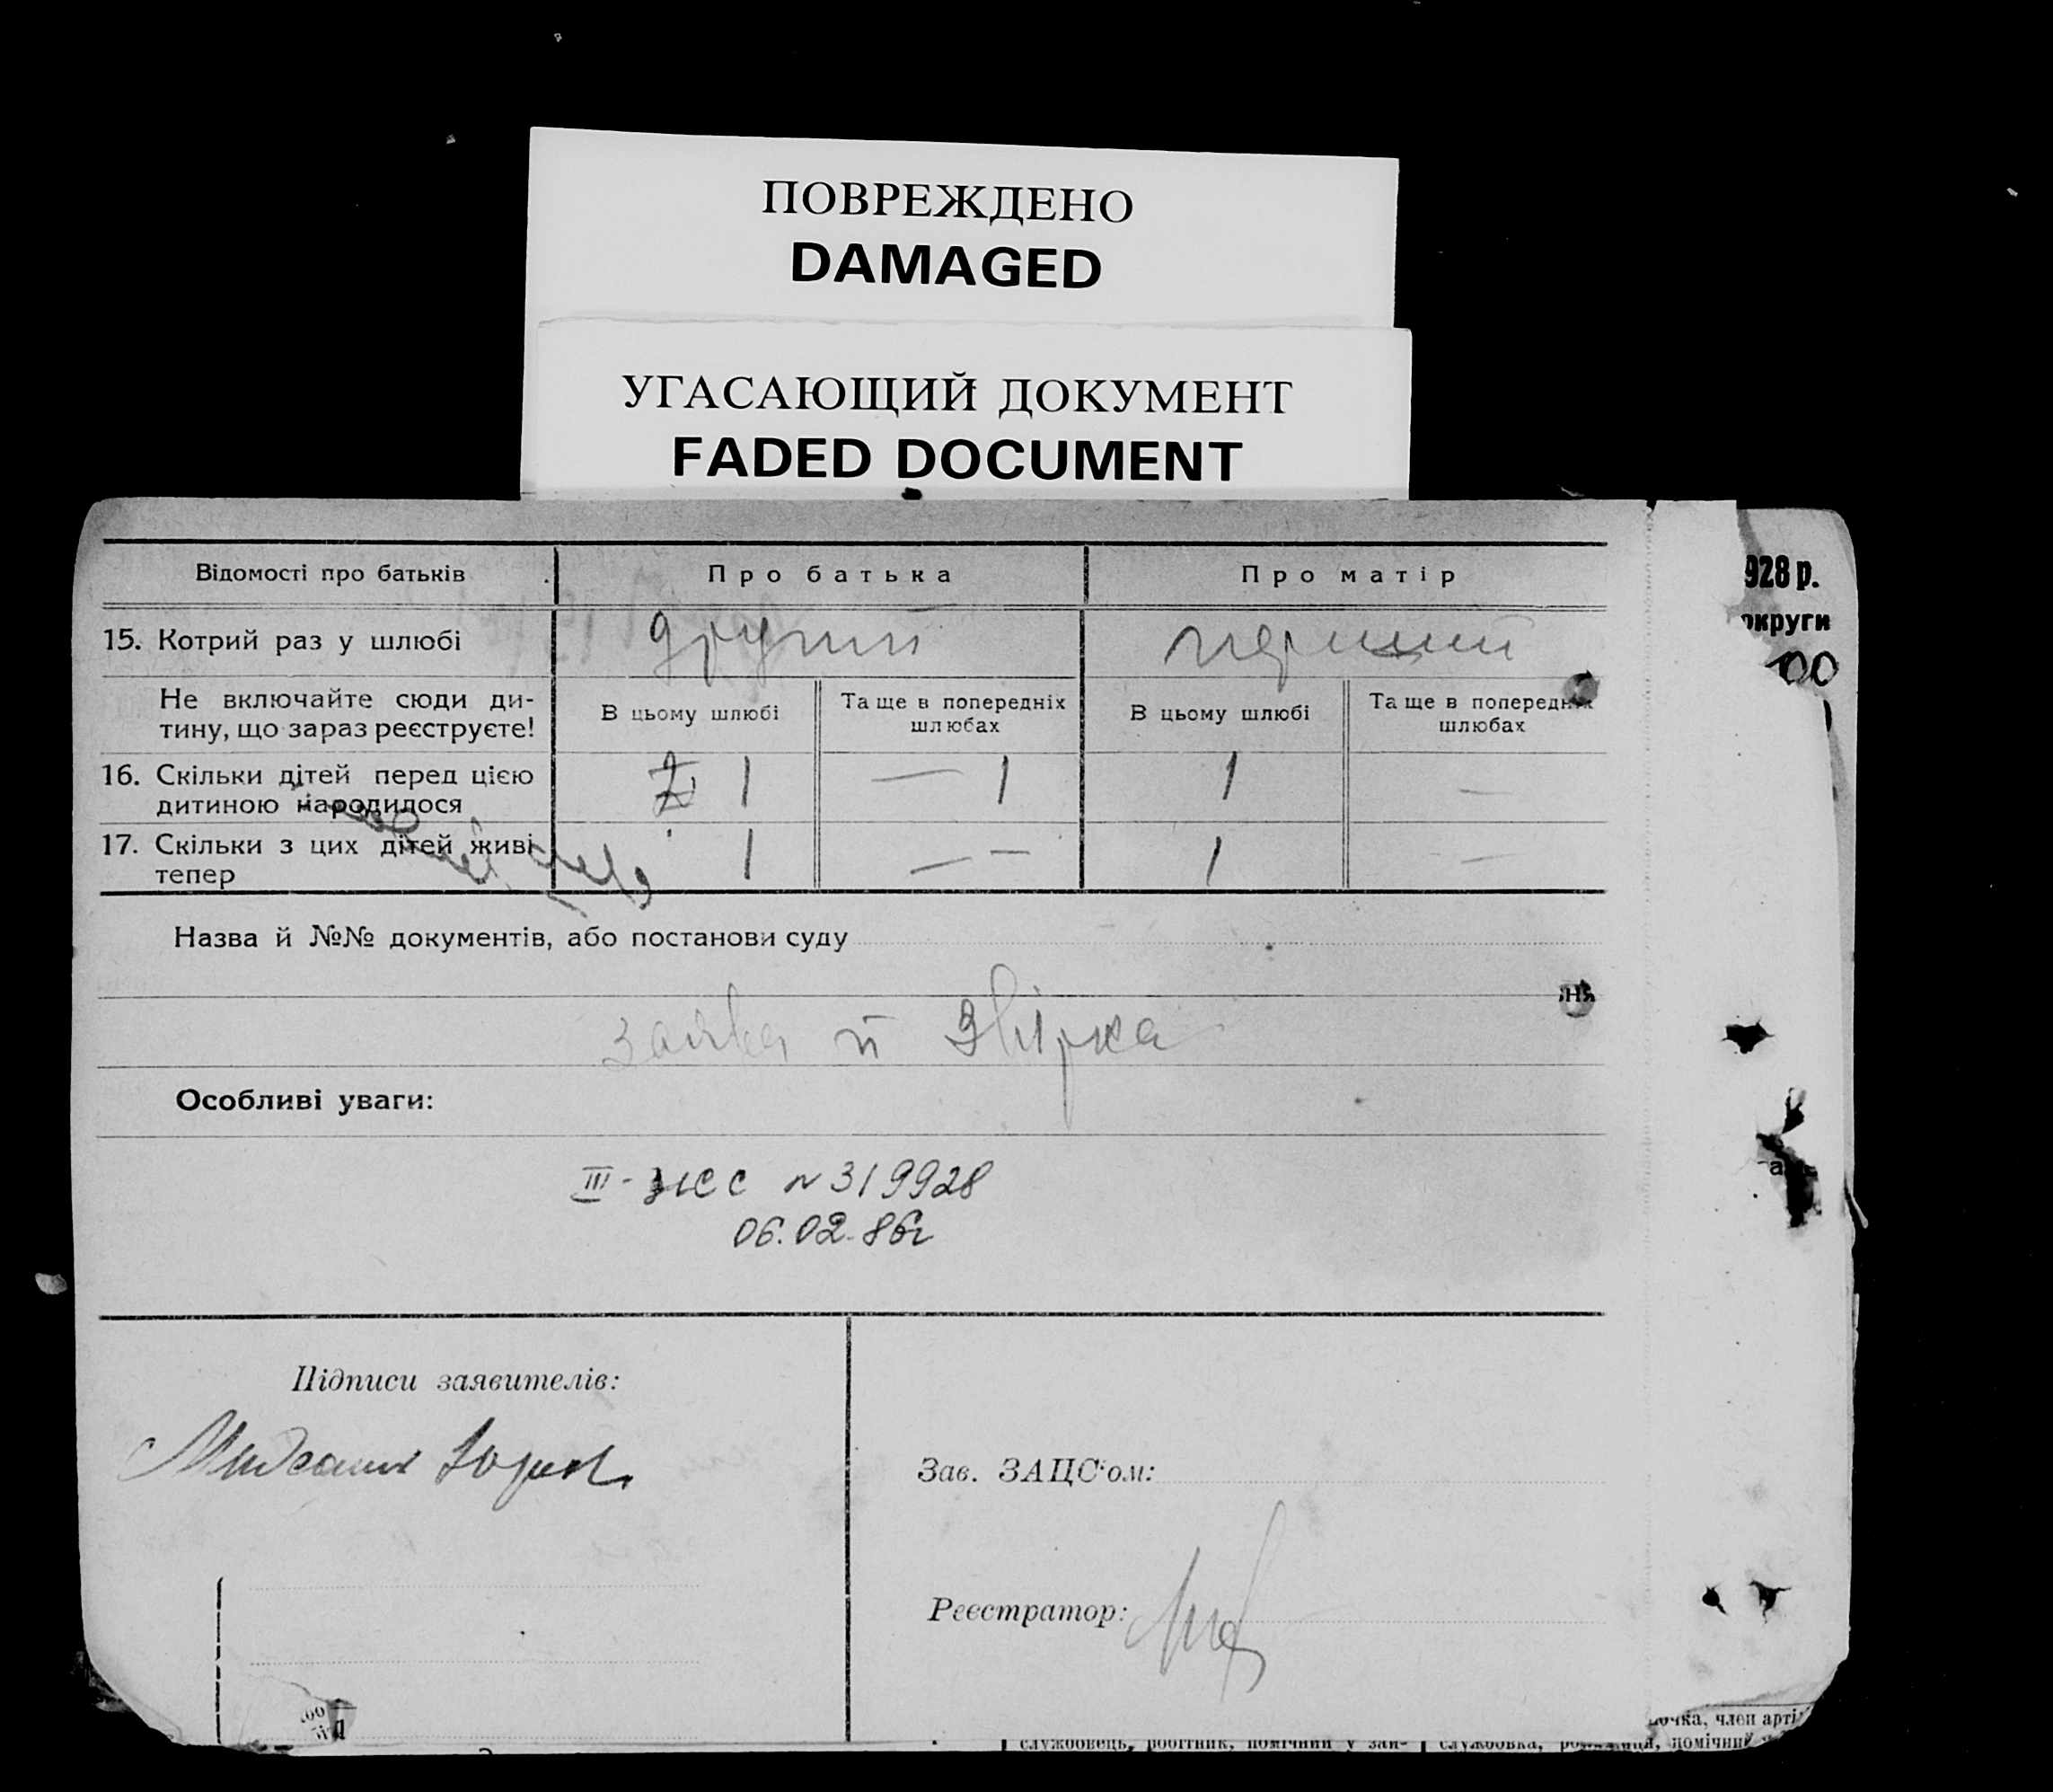 ПОВРЕЖДЕНО
DAMAGED
УГАСАЮЩИЙ ДОКУМЕНТ
FADED DOCUMENT
928 р.
округи
100
Відомості про батьків Про батька Про матір
15. Котрий раз у шлюбі другий перший
Не включайте сюди ди-
тину, що зараз реєструєте!
В цьому шлюбі Та ще в попередніх
шлюбах
В цьому шлюбі Та ще в попередніх
шлюбах
16. Скільки дітей перед цією
дитиною народилося
1 — 1 1 —
17. Скільки з цих дітей живі
тепер
1 — — 1 —
Назва й №№ документів, або постанови суду
ня
заява й звірка
Особливі уваги:
III - ЖС № 319928
06.02.86г
Підписи заявителів:
Зав. ЗАЦС'ом:
Реєстратор:
очка, член арті
службовець, робітник, помічний у зай- службовка, помічни